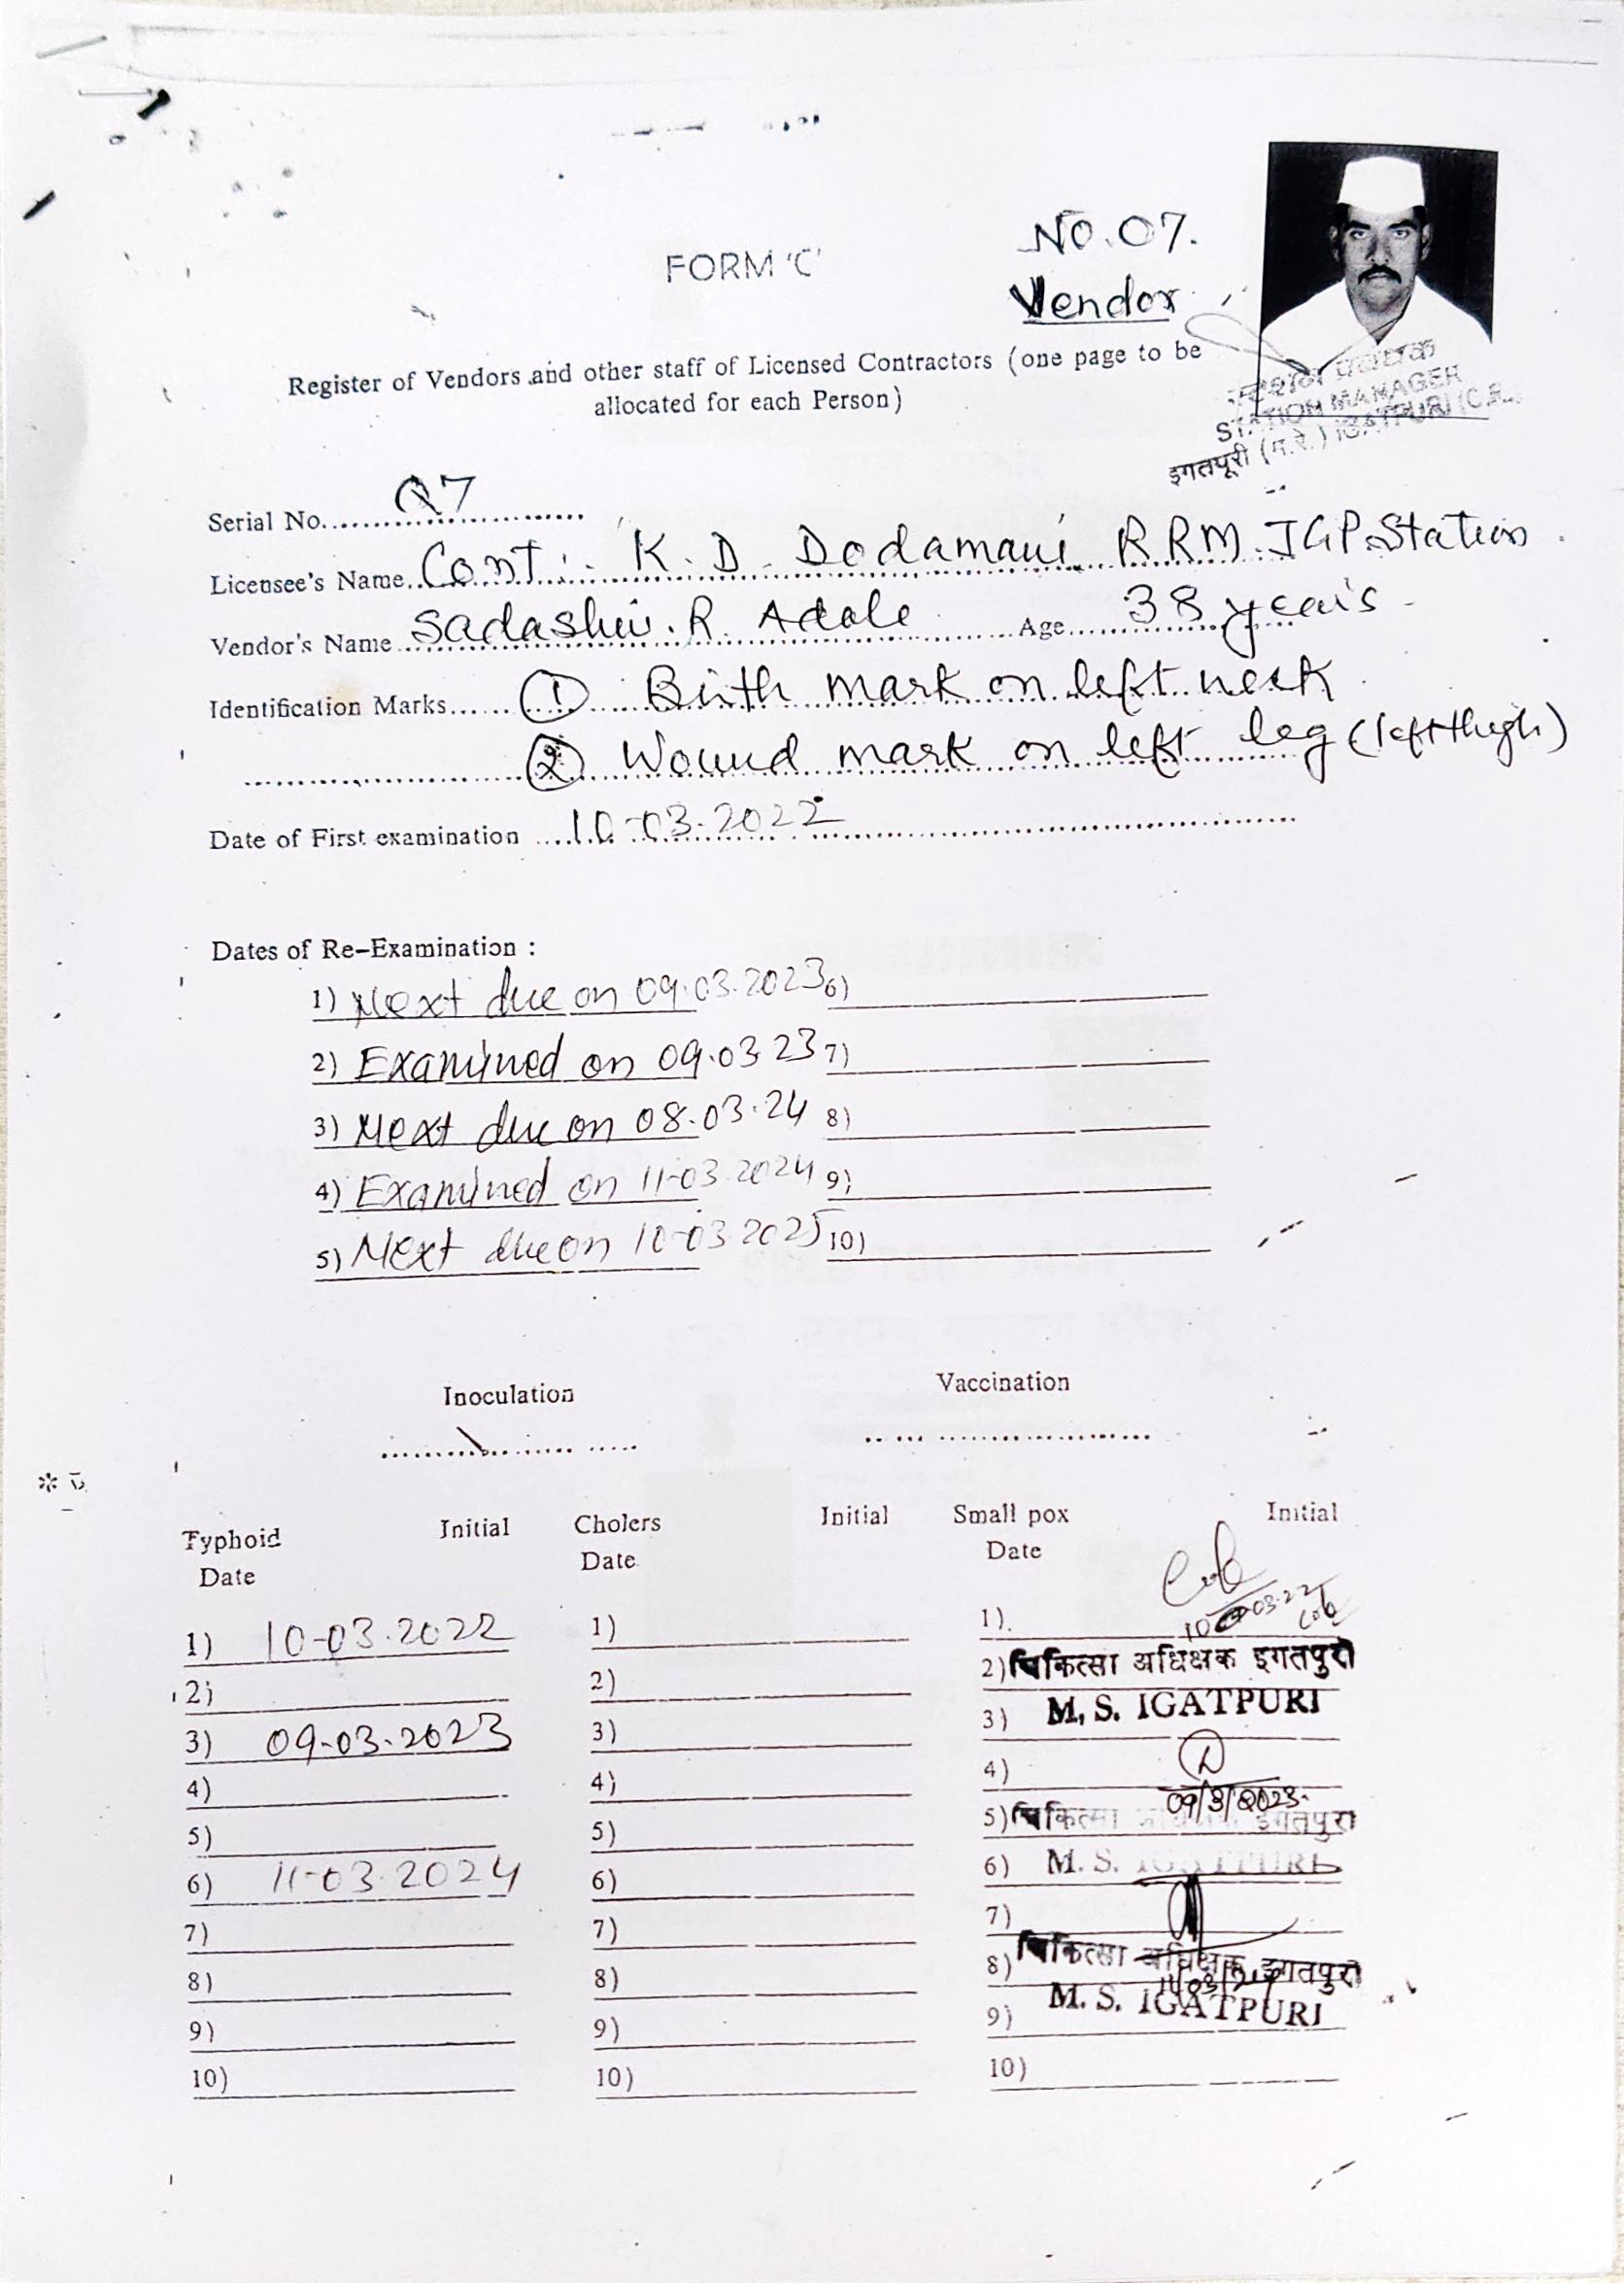 No. 07.
FORM 'C'
Vendor
Register of Vendors and other staff of Licensed Contractors (one page to be
allocated for each Person)
STATION MANAGER
इगतपूरी (म.रे.) IGATPURI (C.R.
Serial No. 07
Licensee's Name. Cont. K. D. Dodamani RRM IGP Station
Vendor's Name Sadashiv. R. Adole Age 38 years
Identification Marks ① Birth mark on left neck
② Wound mark on left leg (left thigh)
Date of First examination 10-03-2022
Dates of Re-Examination :
1) Next due on 09.03.2023 6)
2) Examined on 09.03.23 7)
3) Next due on 08.03.24 8)
4) Examined on 11-03.2024 9)
5) Next due on 10-03.2025 10)
Inoculation Vaccination
Typhoid Initial Cholers Initial Small pox Initial
Date Date Date
1) 10-03.2022 1) 1) 10-03-22
2) 2) 2) चिकित्सा अधिक्षक इगतपुरी
3) 09-03-2023 3) 3) M. S. IGATPURI
4) 4) 4) 09/3/2023
5) 5) 5) चिकित्सा अधिक्षक इगतपुरी
6) 11-03.2024 6) 6) M. S. IGATPURI
7) 7) 7)
8) 8) 8) चिकित्सा अधिक्षक इगतपुरी
11/03/24
9) 9) 9) M. S. IGATPURI
10) 10) 10)